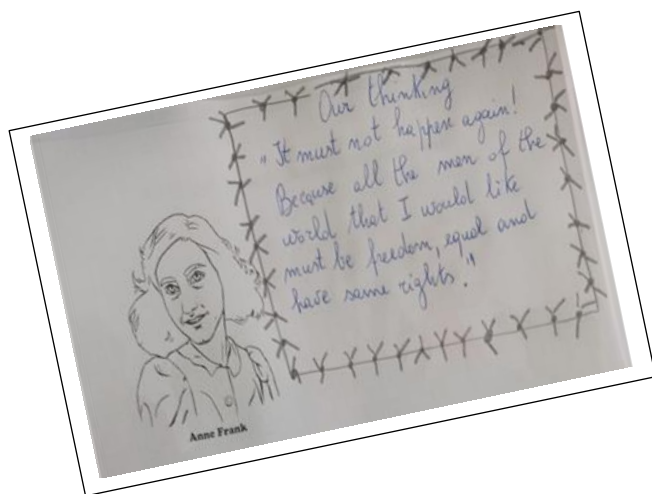 Our thinking
"It must not happen again!
Because all the men of the
world that I would like
must be freedom, equal and
have same rights."
Anne Frank